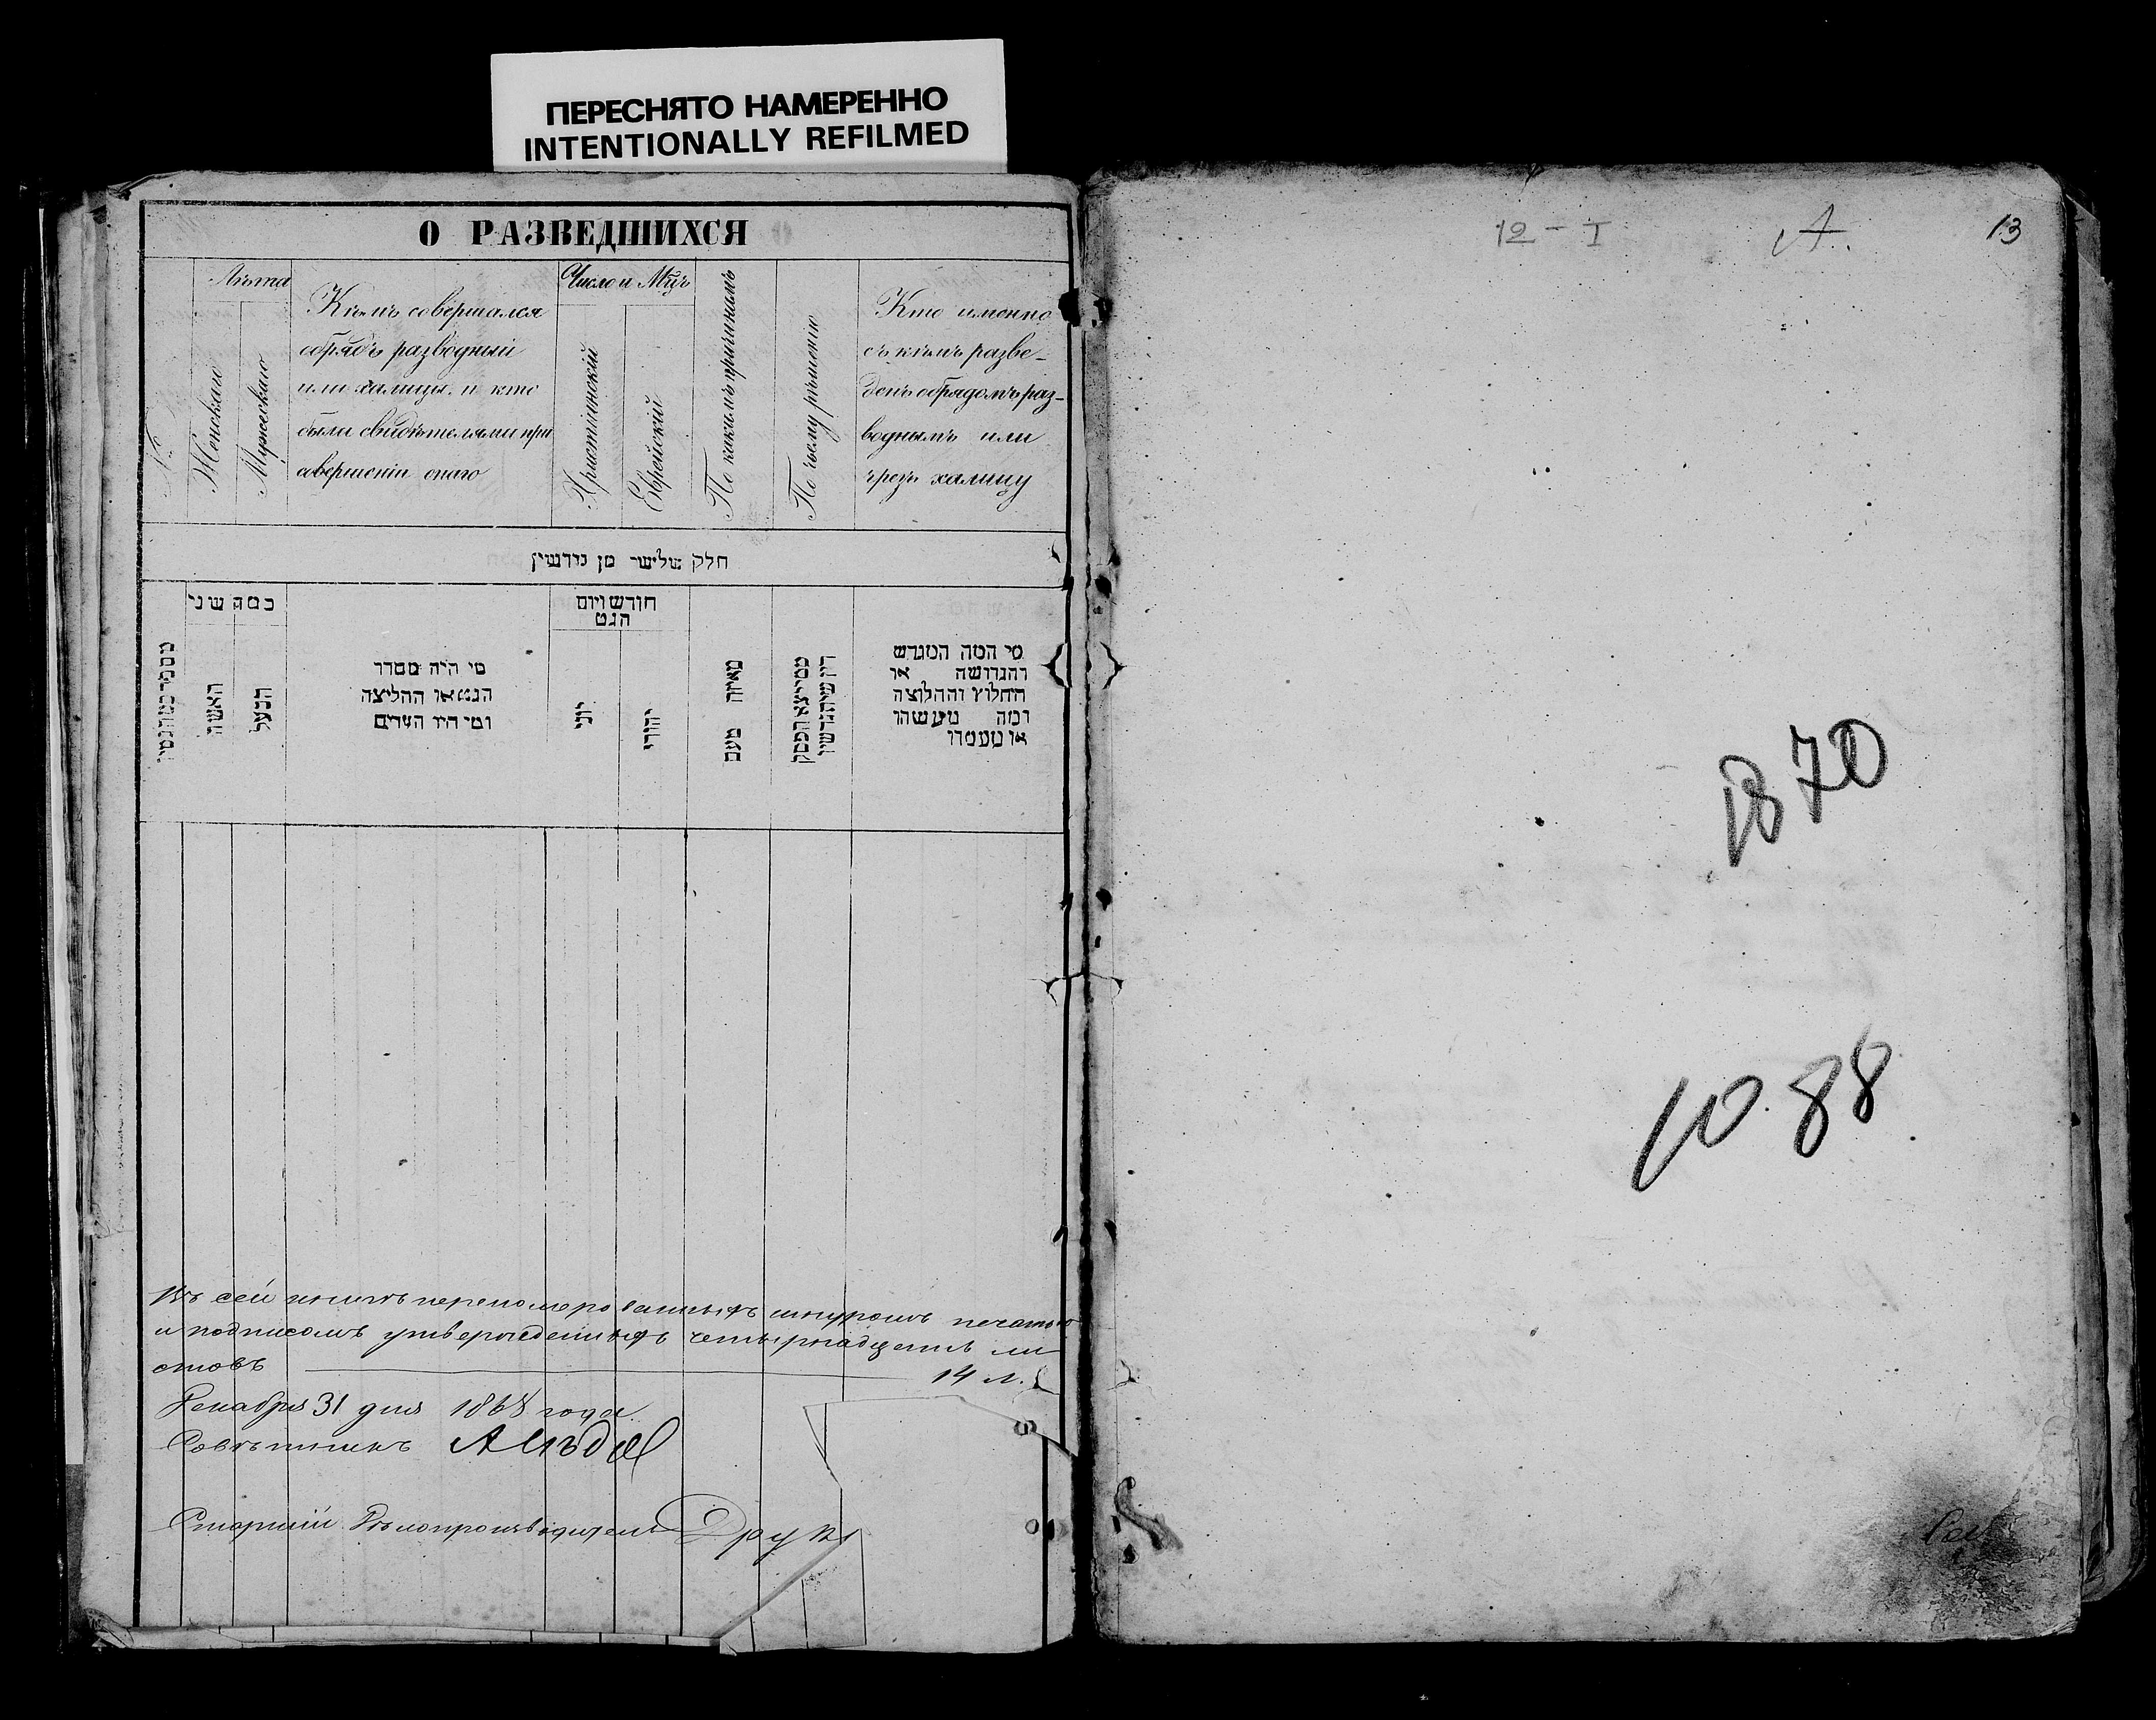 ПЕРЕСНЯТО НАМЕРЕННО
INTENTIONALLY REFILMED
О РАЗВЕДШИХСЯ
№
Лѣта
Женскаго
Мужескаго
Кѣмъ совершался
обрядъ разводный
или халицы и кто
были свидѣтелями при
совершеніи онаго
Число и Мцъ
Христіянскій
Еврейскій
По какимъ причинамъ
По чьему рѣшенію
Кто именно
съ кѣмъ разве-
денъ обрядомъ раз-
воднымъ или
чрезъ халицу
חלק שלישי מן גירושין
כמה שני
האשה
הבעל
מי היה מסדר
הגט או החליצה
ומי היו העדים
חודש ויום
הגט
יוני
יהודי
מאיזה טעם
ממי יצא הפסק
דין שיתגרשו
מי המה המגרש
והגרושה או
החולץ והחלוצה
ומה מעשהו
או מעמדו
Въ сей книгѣ перенумерованныхъ шнуромъ печатью
и подписомъ утвержденныхъ четырнадцать ли
стовъ 14 л.
Декабря 31 дня 1868 года.
Совѣтникъ
Старшій Дѣлопроизводитель
12 - I
А.
13
1870
10.88